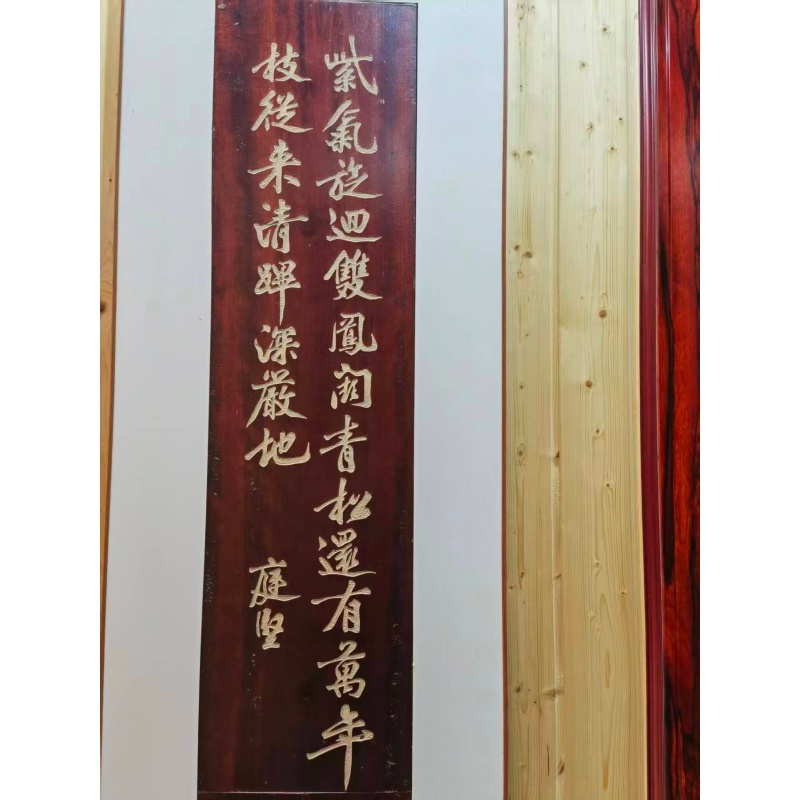 紫氣旋迴雙鳳闕青松還有萬年
枝從来清蹕深嚴地
庭堅